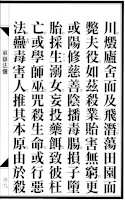 川燬廬舍而及飛潛蕩田園而
斃夫役如茲殺業貽害無窮更
或陽修慈善陰播毒腸損子墮
胎採生溺女妄投藥餌致彼枉
亡或學師巫咒殺生命或行惡
法蠱毒害人推其本原由於殺